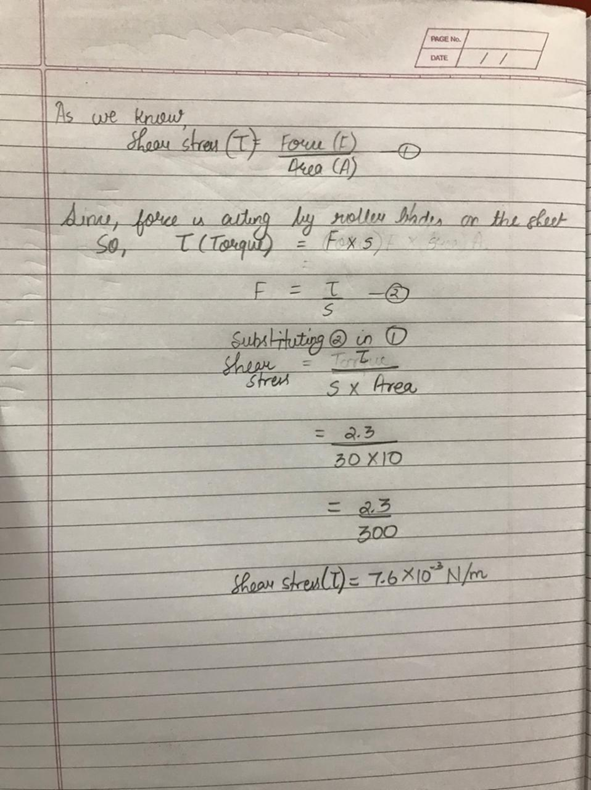 PAGE No.
DATE / /
As we know,
Shear stress (T) = Force (F) / Area (A) — ①
Since, force is acting by roller on the sheet
So, T (Torque) = F x s
F = T / S — ②
Substituting ② in ①
Shear stress = T / S x Area
= 2.3 / 30 x 10
= 2.3 / 300
Shear stress (T) = 7.6 x 10⁻³ N/m